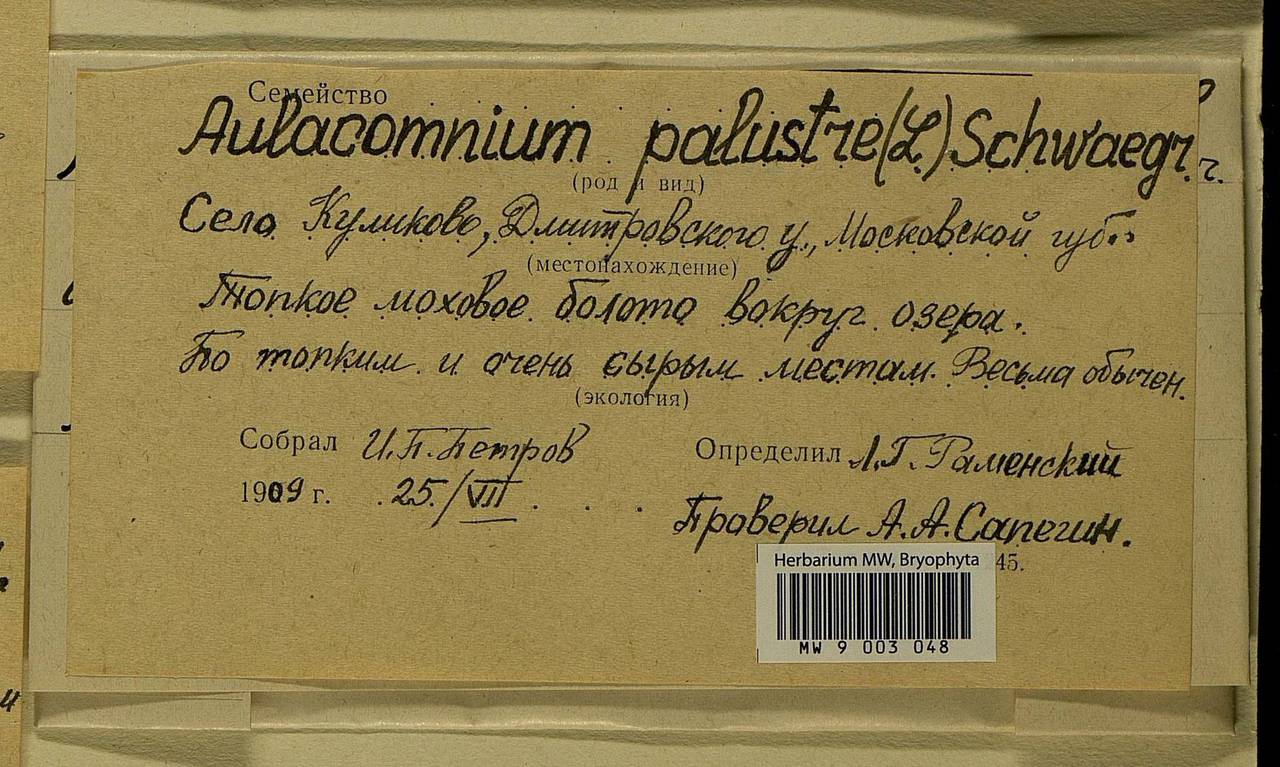 Семейство
Aulacomnium palustre (L.) Schwaegr.
(род и вид)
Село Куликово, Дмитровского у., Московской губ.
(местонахождение)
Топкое моховое болото вокруг озера.
По топким и очень сырым местам. Весьма обычен.
(экология)
Собрал И.П. Петров
Определил Л.Г. Раменский
1909 г. 25./VII
Проверил А.А. Сапегин.
45.
Herbarium MW, Bryophyta
MW 9 003 048